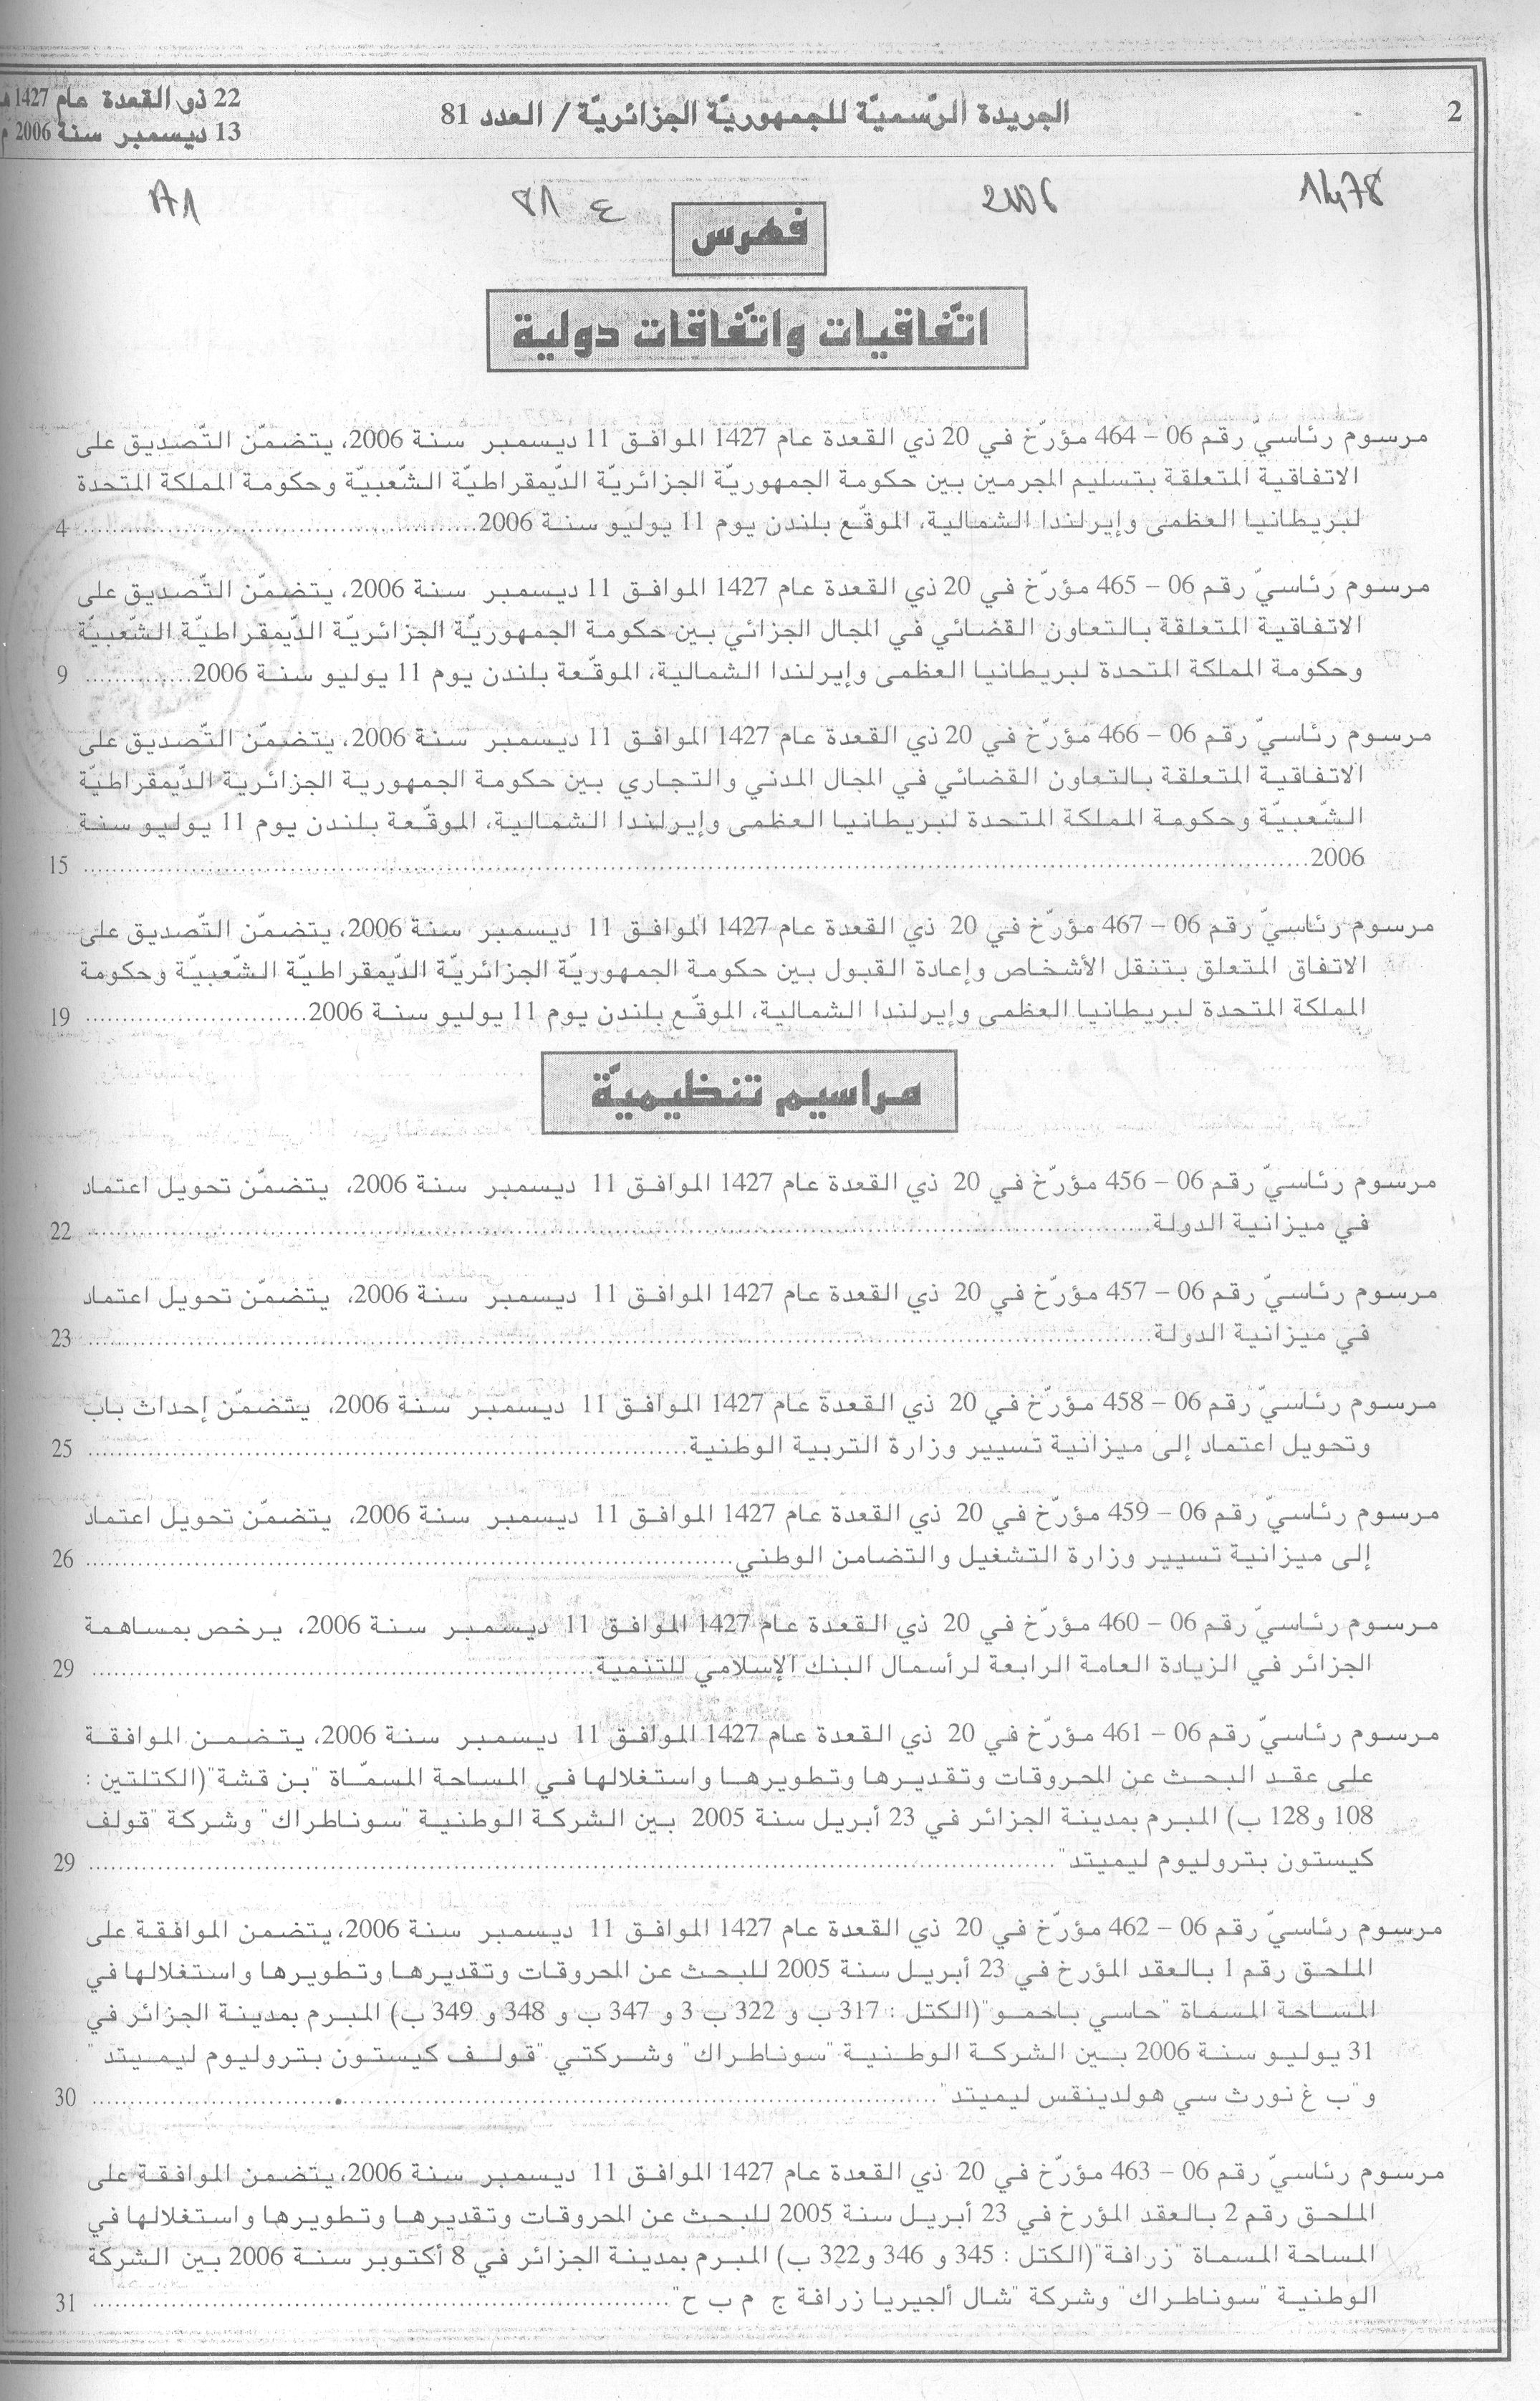 2
الجريدة الرّسميّة للجمهوريّة الجزائريّة / العدد 81
22 ذو القعدة عام 1427 هـ
13 ديسمبر سنة 2006 م
1478
2006
ع 81
A1
فهرس
اتّفاقيات واتّفاقات دولية
مرسوم رئاسيّ رقم 06 – 464 مؤرّخ في 20 ذي القعدة عام 1427 الموافق 11 ديسمبر سنة 2006، يتضمّن التّصديق على
الاتفاقية المتعلقة بتسليم المجرمين بين حكومة الجمهوريّة الجزائريّة الدّيمقراطيّة الشّعبيّة وحكومة المملكة المتحدة
لبريطانيا العظمى وإيرلندا الشمالية، الموقّع بلندن يوم 11 يوليو سنة 2006 ........ 4
مرسوم رئاسيّ رقم 06 – 465 مؤرّخ في 20 ذي القعدة عام 1427 الموافق 11 ديسمبر سنة 2006، يتضمّن التّصديق على
الاتفاقية المتعلقة بالتعاون القضائي في المجال الجزائي بين حكومة الجمهوريّة الجزائريّة الدّيمقراطيّة الشّعبيّة
وحكومة المملكة المتحدة لبريطانيا العظمى وإيرلندا الشمالية، الموقّعة بلندن يوم 11 يوليو سنة 2006 ........ 9
مرسوم رئاسيّ رقم 06 – 466 مؤرّخ في 20 ذي القعدة عام 1427 الموافق 11 ديسمبر سنة 2006، يتضمّن التّصديق على
الاتفاقية المتعلقة بالتعاون القضائي في المجال المدني والتجاري بين حكومة الجمهورية الجزائرية الدّيمقراطيّة
الشّعبيّة وحكومة المملكة المتحدة لبريطانيا العظمى وإيرلندا الشمالية، الموقّعة بلندن يوم 11 يوليو سنة
2006 ........ 15
مرسوم رئاسيّ رقم 06 – 467 مؤرّخ في 20 ذي القعدة عام 1427 الموافق 11 ديسمبر سنة 2006، يتضمّن التّصديق على
الاتفاق المتعلق بتنقل الأشخاص وإعادة القبول بين حكومة الجمهوريّة الجزائريّة الدّيمقراطيّة الشّعبيّة وحكومة
المملكة المتحدة لبريطانيا العظمى وإيرلندا الشمالية، الموقّع بلندن يوم 11 يوليو سنة 2006 ........ 19
مراسيم تنظيميّة
مرسوم رئاسيّ رقم 06 – 456 مؤرّخ في 20 ذي القعدة عام 1427 الموافق 11 ديسمبر سنة 2006، يتضمّن تحويل اعتماد
في ميزانية الدولة ........ 22
مرسوم رئاسيّ رقم 06 – 457 مؤرّخ في 20 ذي القعدة عام 1427 الموافق 11 ديسمبر سنة 2006، يتضمّن تحويل اعتماد
في ميزانية الدولة ........ 23
مرسوم رئاسيّ رقم 06 – 458 مؤرّخ في 20 ذي القعدة عام 1427 الموافق 11 ديسمبر سنة 2006، يتضمّن إحداث باب
وتحويل اعتماد إلى ميزانية تسيير وزارة التربية الوطنية ........ 25
مرسوم رئاسيّ رقم 06 – 459 مؤرّخ في 20 ذي القعدة عام 1427 الموافق 11 ديسمبر سنة 2006، يتضمّن تحويل اعتماد
إلى ميزانية تسيير وزارة التشغيل والتضامن الوطني ........ 26
مرسوم رئاسيّ رقم 06 – 460 مؤرّخ في 20 ذي القعدة عام 1427 الموافق 11 ديسمبر سنة 2006، يرخص بمساهمة
الجزائر في الزيادة العامة الرابعة لرأسمال البنك الإسلامي للتنمية ........ 29
مرسوم رئاسيّ رقم 06 – 461 مؤرّخ في 20 ذي القعدة عام 1427 الموافق 11 ديسمبر سنة 2006، يتضمن الموافقة
على عقد البحث عن المحروقات وتقديرها وتطويرها واستغلالها في المساحة المسمّاة "بن قشة" (الكتلتين :
108 و128 ب) المبرم بمدينة الجزائر في 23 أبريل سنة 2005 بين الشركة الوطنية "سوناطراك" وشركة "قولف
كيستون بتروليوم ليميتد" ........ 29
مرسوم رئاسيّ رقم 06 – 462 مؤرّخ في 20 ذي القعدة عام 1427 الموافق 11 ديسمبر سنة 2006، يتضمن الموافقة على
الملحق رقم 1 بالعقد المؤرخ في 23 أبريل سنة 2005 للبحث عن المحروقات وتقديرها وتطويرها واستغلالها في
المساحة المسماة "حاسي باحمو" (الكتل : 317 ب و 322 ب 3 و 347 ب و 348 و 349 ب) المبرم بمدينة الجزائر في
31 يوليو سنة 2006 بين الشركة الوطنية "سوناطراك" وشركتي "قولف كيستون بتروليوم ليميتد"
و"ب غ نورث سي هولدينقس ليميتد" ........ 30
مرسوم رئاسيّ رقم 06 – 463 مؤرّخ في 20 ذي القعدة عام 1427 الموافق 11 ديسمبر سنة 2006، يتضمن الموافقة على
الملحق رقم 2 بالعقد المؤرخ في 23 أبريل سنة 2005 للبحث عن المحروقات وتقديرها وتطويرها واستغلالها في
المساحة المسماة "زرافة" (الكتل : 345 و 346 و322 ب) المبرم بمدينة الجزائر في 8 أكتوبر سنة 2006 بين الشركة
الوطنية "سوناطراك" وشركة "شال ألجيريا زرافة ج م ب ح" ........ 31